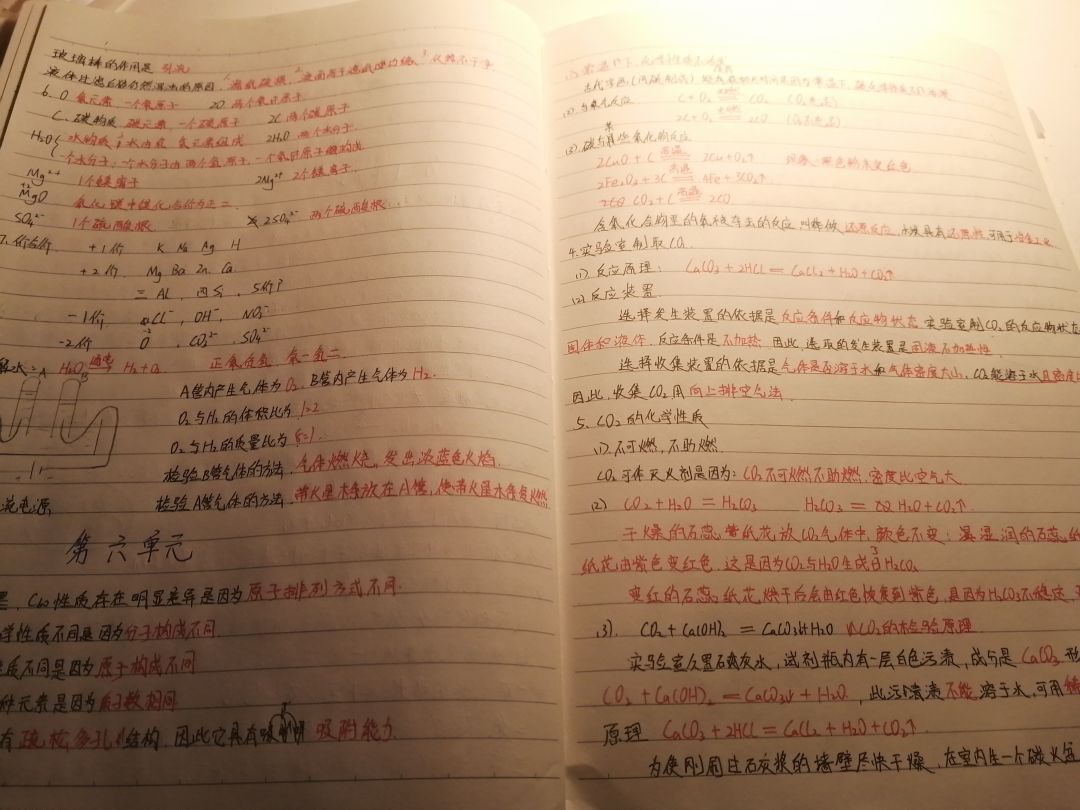 玻璃棒的作用是 引流
液体过滤后仍然混浊的原因 1.滤纸破损 2.液面高于滤纸边缘 3.仪器不干净
6. O 氧元素 一个氧原子 2O 两个氧原子
C. 碳物质 碳元素 一个碳原子 2C 两个碳原子
H₂O 水物质 水由氢 氧元素组成 2H₂O 两个水分子
一个水分子 一个水分子由两个氢原子 一个氧原子构成
Mg²⁺ 1个镁离子 2Mg²⁺ 2个镁离子
MgO 氧化镁中镁化合价为正二
SO₄²⁻ 1个硫酸根 2SO₄²⁻ 两个硫酸根
7. 价 +1价 K Na Ag H
+2价 Mg Ba Zn Ca
三 Al
-1价 Cl⁻, OH⁻, NO₃⁻
-2价 O, CO₃²⁻, SO₄²⁻
H₂O 通电 H₂+O₂ 正氧负氢 氧一氢二
A B
A管内产生气体为O₂ B管内产生气体为H₂
O₂与H₂的体积比为1:2
O₂与H₂的质量比为8:1
检验B管气体的方法 气体燃烧, 发出淡蓝色火焰
电源 检验A管气体的方法 带火星木条放在A管, 使带火星木条复燃
第六单元
C₆₀性质存在明显差异是因为原子排列方式不同
学性质不同是因为分子构成不同
质不同是因为原子构成不同
种元素是因为质子数相同
有疏松多孔结构 因此它具有吸附能力
(1) 常温下, 化学性质不活泼
C+O₂ CO₂ (O₂充足)
2C+O₂ 2CO (O₂不充足)
(3) 碳与某些氧化物的反应
2CuO+C 高温 2Cu+CO₂↑ 现象:黑色粉末变红色
2Fe₂O₃+3C 高温 4Fe+3CO₂↑
CO₂+C 高温 2CO
含氧化合物里的氧被夺去的反应 叫做 还原反应 具有还原性 可用于冶金工业
4. 实验室制取CO₂
(1) 反应原理: CaCO₃+2HCl=CaCl₂+H₂O+CO₂↑
(2) 反应装置
选择发生装置的依据是反应条件和反应物状态 实验室制CO₂的反应物状态
固体和液体. 反应条件是不加热 因此, 选取的发生装置是固液不加热型
选择收集装置的依据是气体是否溶于水和气体密度大小, CO₂能溶于水且密度
因此, 收集CO₂用向上排空气法
5. CO₂的化学性质
(1) 不可燃, 不助燃
CO₂可作灭火剂是因为: CO₂不可燃不助燃 密度比空气大
(2) CO₂+H₂O=H₂CO₃ H₂CO₃= H₂O+CO₂↑
干燥的石蕊纸花放CO₂气体中 颜色不变; 湿润的石蕊纸
纸花由紫色变红色 这是因为CO₂与H₂O生成H₂CO₃
变红的石蕊纸花烘干后会由红色恢复到紫色, 是因为H₂CO₃不稳定
(3). CO₂+Ca(OH)₂=CaCO₃↓+H₂O CO₂的检验原理
实验室久置石灰水, 试剂瓶内有一层白色污渍, 成分是CaCO₃形
CO₂+Ca(OH)₂=CaCO₃↓+H₂O 此污渍不能溶于水, 可用稀
原理 CaCO₃+2HCl=CaCl₂+H₂O+CO₂↑
为使刚刷过石灰浆的墙壁尽快干燥, 在室内生一个碳火盆